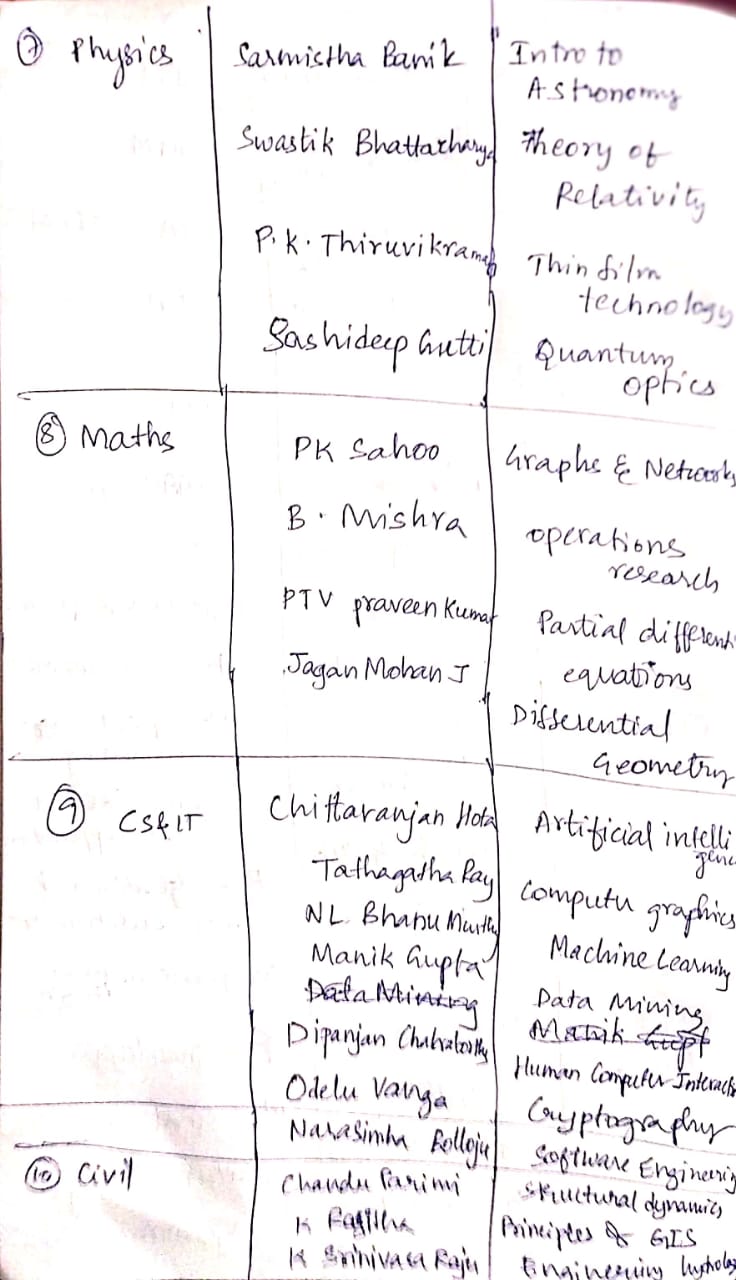 ⑦ Physics Sarmistha Banik Intro to
Astronomy
Swastik Bhattacharya Theory of
Relativity
P.K. Thiruvikraman Thin film
technology
Sashideep Gutti Quantum
optics
⑧ Maths PK Sahoo Graphs & Networks
B. Mishra operations
research
PTV praveen Kumar Partial different
equations
Jagan Mohan J Differential
Geometry
⑨ CS&IT Chittaranjan Hota Artificial intelli
gence
Tathagatha Ray Computer graphics
NL Bhanu Murthy Machine Learning
Manik Gupta Data Mining
Data Mining Manik Gupt
Dipanjan Chakraborthy Human Computer Interact
Odelu Vanga Cryptography
Narasimha Bolloju Software Engineering
⑩ Civil Chandu Parimi Structural dynamics
K Principles of GIS
K Srinivasa Raju Engineering hydrology